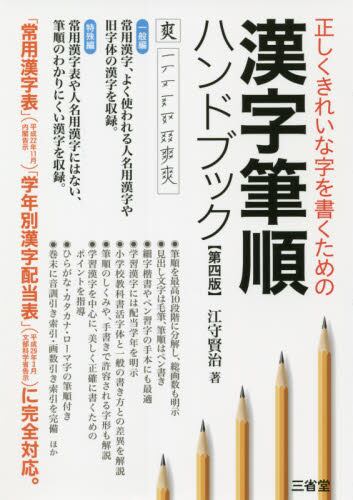 正しくきれいな字を書くための
漢字筆順
ハンドブック
【第四版】
江守賢治 著
爽
一般編
常用漢字、よく使われる人名用漢字や
旧字体の漢字を収録。
特殊編
常用漢字表や人名用漢字にはない、
筆順のわかりにくい漢字を収録。
「常用漢字表」(平成22年11月内閣告示)「学年別漢字配当表」(平成29年3月文部科学省告示)に完全対応。
●筆順を最高10段階に分解し、総画数も明示
●見出し文字は毛筆、筆順はペン書き
●細字楷書やペン習字の手本にも最適
●学習漢字には配当学年を明示
●小学校教科書活字体と一般の書き方との差異を解説
●筆順のしくみや、手書きで許容される字形も解説
●学習漢字を中心に、美しく正確に書くための
ポイントを指導
●ひらがな・カタカナ・ローマ字の筆順付き
●巻末に音訓引き索引・画数引き索引を完備 ほか
三省堂